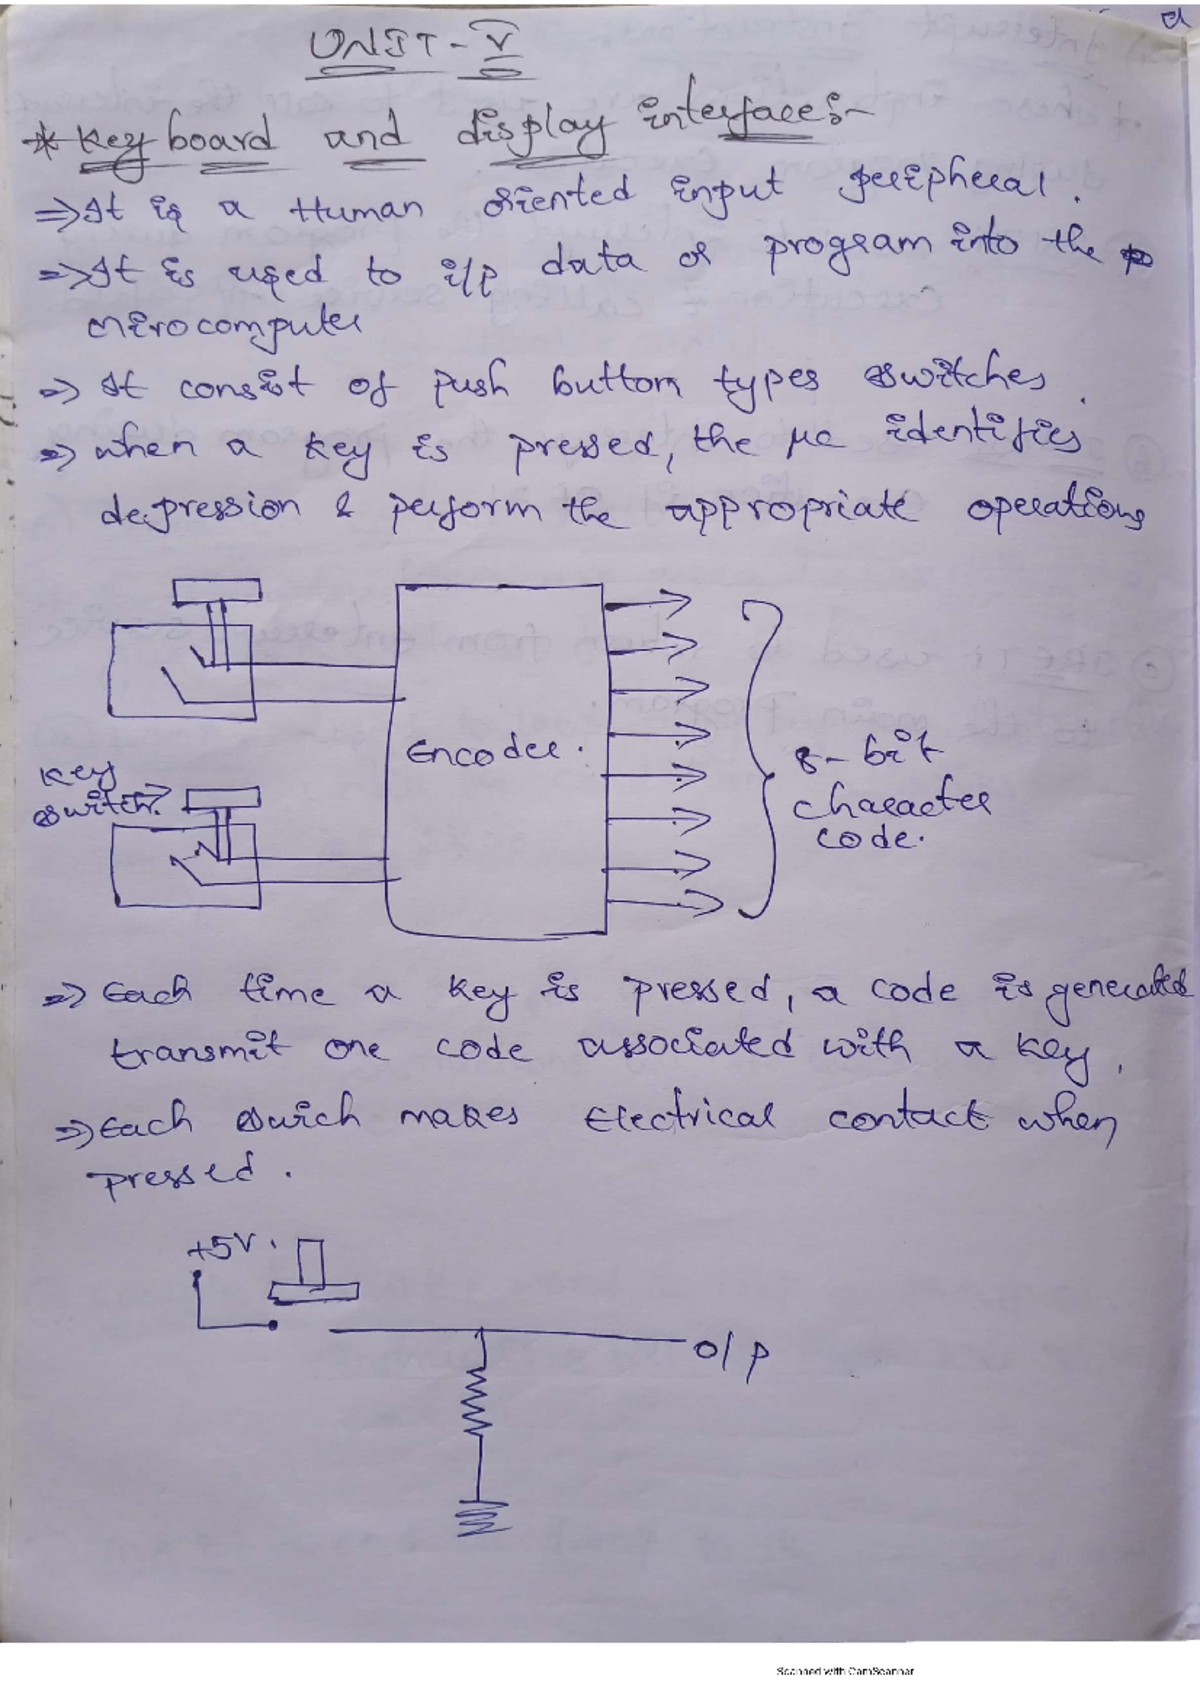 UNIT-V
* Keyboard and display interfaces:-
=> It is a Human oriented input peripheral.
=> It is used to i/p data or program into the
microcomputer
=> It consist of push button types switches.
=> when a key is pressed, the µc identifies
depression & perform the appropriate operations
Encoder.
8-bit
character
code.
Key
switch.
=> Each time a key is pressed, a code is generated
transmit one code associated with a key.
=> Each swich makes Electrical contact when
pressed.
+5V.
o/p
Scanned with CamScanner